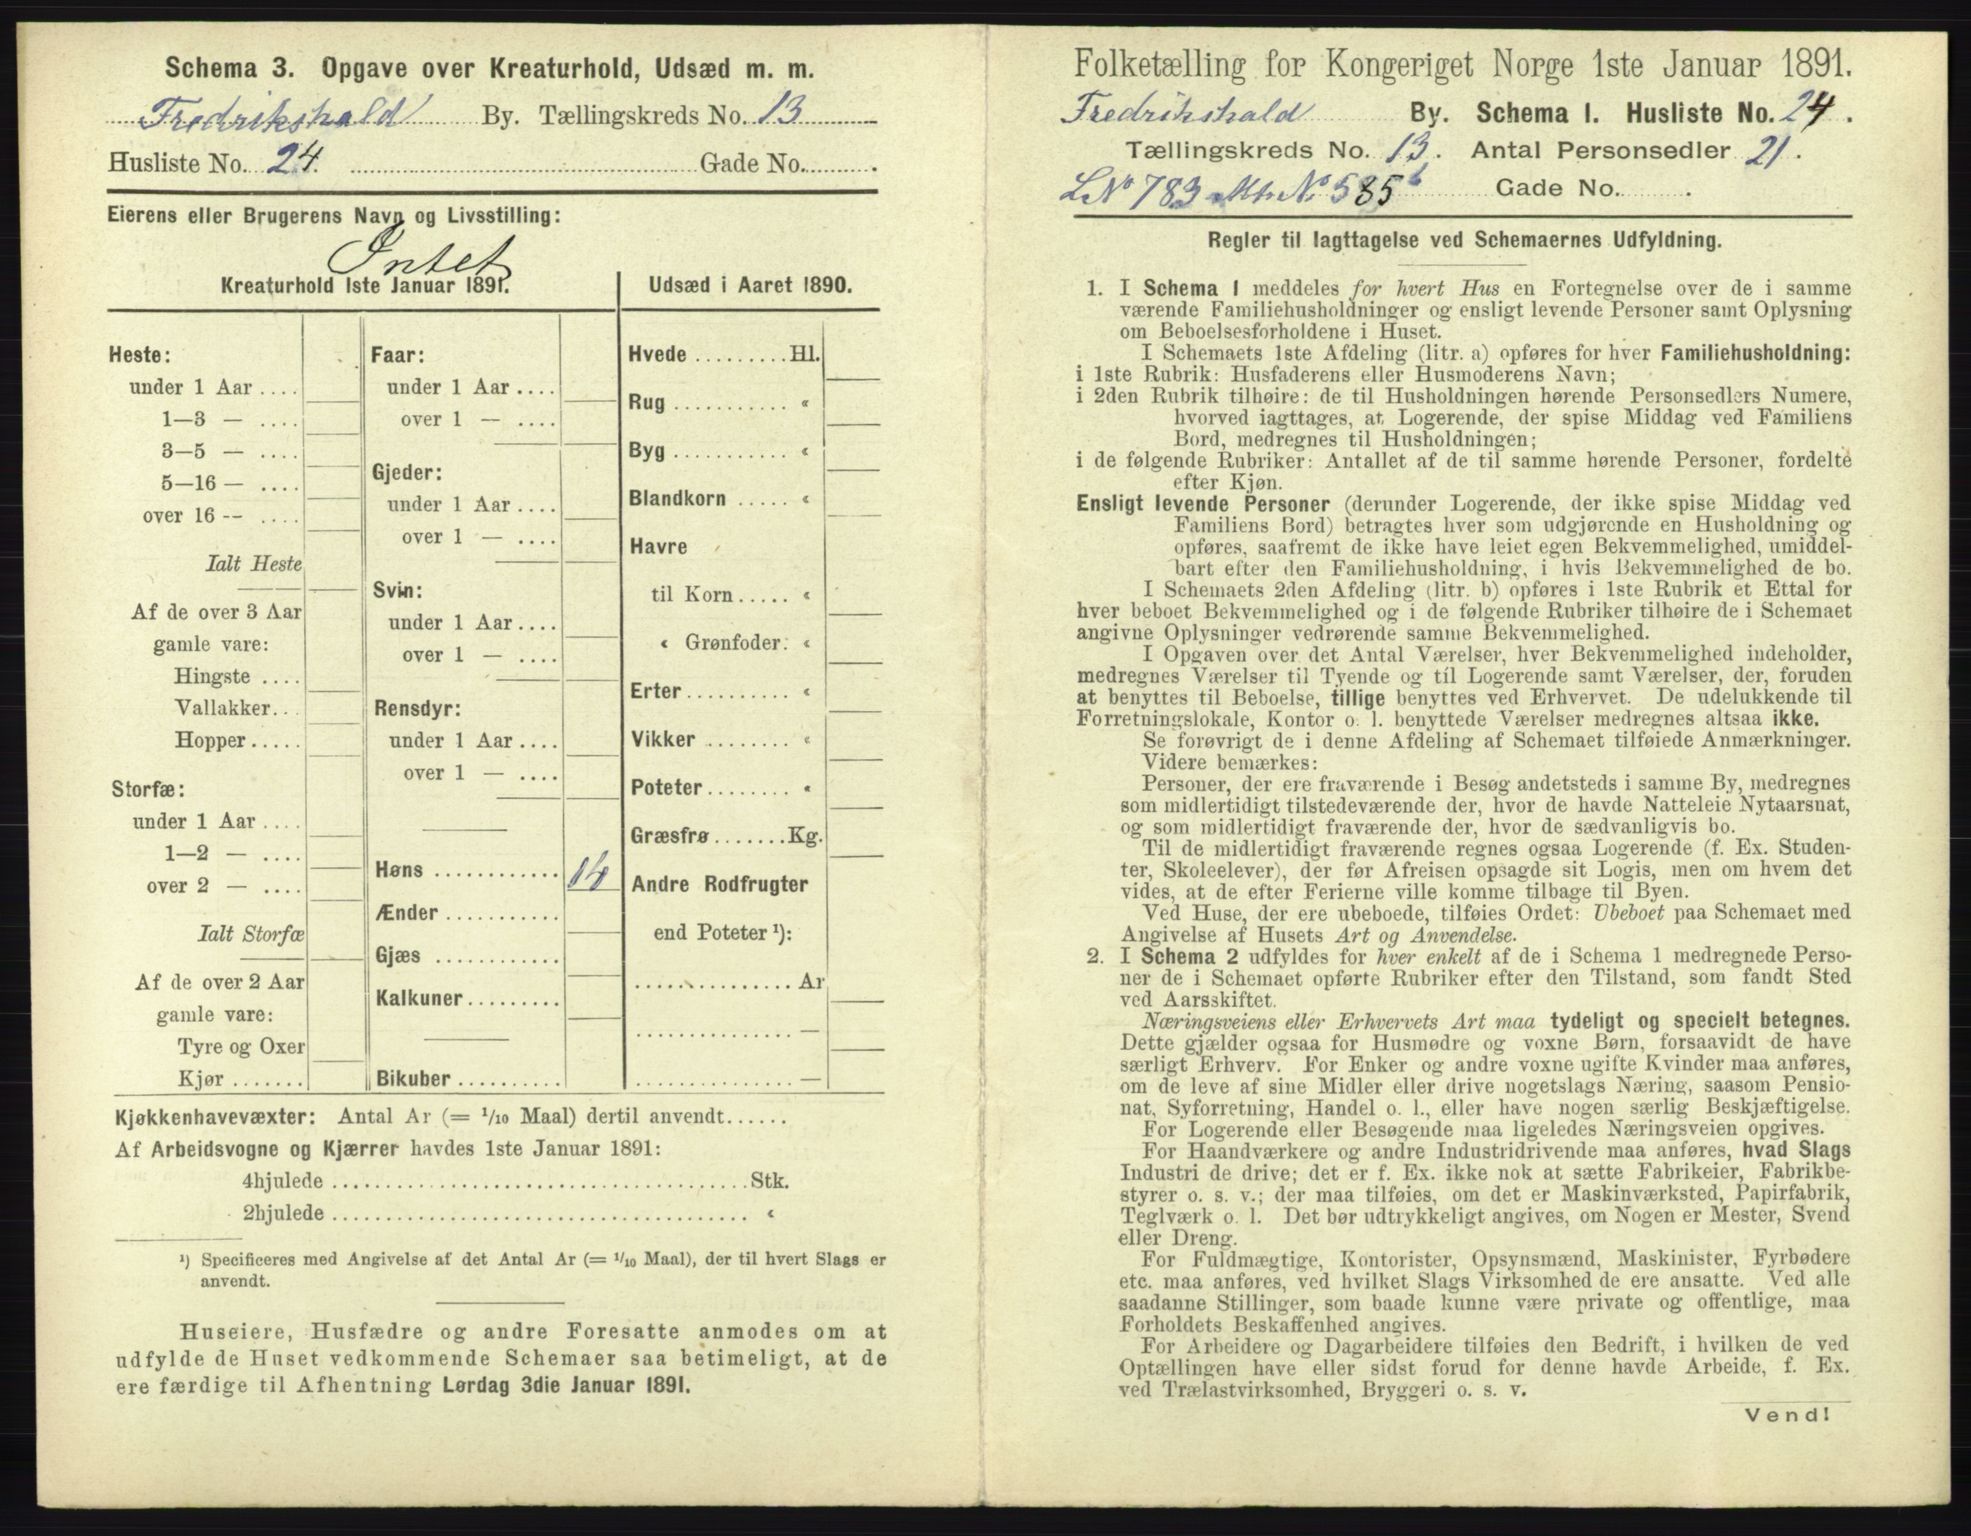 Schema 3. Opgave over Kreaturhold, Udsæd m. m.
Fredrikshald By. Tællingskreds No. 13
Husliste No. 24. Gade No. .
Eierens eller Brugerens Navn og Livsstilling:
Intet
Kreaturhold 1ste Januar 1891.
Heste:
under 1 Aar ....
1—3 — ....
3—5 — ....
5—16 — ....
over 16 -- ....
Ialt Heste
Af de over 3 Aar
gamle vare:
Hingste ....
Vallakker..
Hopper.....
Storfæ:
under 1 Aar ....
1—2 — ....
over 2 — ....
Ialt Storfæ
Af de over 2 Aar
gamle vare:
Tyre og Oxer
Kjør .......
Faar:
under 1 Aar ....
over 1 — ....
Gjeder:
under 1 Aar ....
over 1 — ....
Svin:
under 1 Aar ....
over 1 — ....
Rensdyr:
under 1 Aar ....
over 1 — ....
Høns ............ 14
Ænder ...........
Gjæs ............
Kalkuner.........
Bikuber ..........
Udsæd i Aaret 1890.
Hvede .........Hl.
Rug ........... «
Byg ........... «
Blandkorn ..... «
Havre
til Korn..... «
« Grønfoder. «
Erter.......... «
Vikker ........ «
Poteter........ «
Græsfrø .......Kg.
Andre Rodfrugter
end Poteter ¹):
............... Ar
............... —
............... —
Kjøkkenhavevæxter: Antal Ar (= 1/10 Maal) dertil anvendt......
Af Arbeidsvogne og Kjærrer havdes 1ste Januar 1891:
4hjulede ........................................Stk.
2hjulede ........................................ «
¹) Specificeres med Angivelse af det Antal Ar (= 1/10 Maal), der til hvert Slags er
anvendt.
Huseiere, Husfædre og andre Foresatte anmodes om at
udfylde de Huset vedkommende Schemaer saa betimeligt, at de
ere færdige til Afhentning Lørdag 3die Januar 1891.
Folketælling for Kongeriget Norge 1ste Januar 1891.
Fredrikshald By. Schema I. Husliste No. 24.
Tællingskreds No. 13. Antal Personsedler 21.
LNo 783 Mtr. No 585 b Gade No. .
Regler til Iagttagelse ved Schemaernes Udfyldning.
1. I Schema 1 meddeles for hvert Hus en Fortegnelse over de i samme
værende Familiehusholdninger og ensligt levende Personer samt Oplysning
om Beboelsesforholdene i Huset.
I Schemaets 1ste Afdeling (litr. a) opføres for hver Familiehusholdning:
i 1ste Rubrik: Husfaderens eller Husmoderens Navn;
i 2den Rubrik tilhøire: de til Husholdningen hørende Personsedlers Numere,
hvorved iagttages, at Logerende, der spise Middag ved Familiens
Bord, medregnes til Husholdningen;
i de følgende Rubriker: Antallet af de til samme hørende Personer, fordelte
efter Kjøn.
Ensligt levende Personer (derunder Logerende, der ikke spise Middag ved
Familiens Bord) betragtes hver som udgjørende en Husholdning og
opføres, saafremt de ikke have leiet egen Bekvemmelighed, umiddel-
bart efter den Familiehusholdning, i hvis Bekvemmelighed de bo.
I Schemaets 2den Afdeling (litr. b) opføres i 1ste Rubrik et Ettal for
hver beboet Bekvemmelighed og i de følgende Rubriker tilhøire de i Schemaet
angivne Oplysninger vedrørende samme Bekvemmelighed.
I Opgaven over det Antal Værelser, hver Bekvemmelighed indeholder,
medregnes Værelser til Tyende og til Logerende samt Værelser, der, foruden
at benyttes til Beboelse, tillige benyttes ved Erhvervet. De udelukkende til
Forretningslokale, Kontor o. l. benyttede Værelser medregnes altsaa ikke.
Se forøvrigt de i denne Afdeling af Schemaet tilføiede Anmærkninger.
Videre bemærkes:
Personer, der ere fraværende i Besøg andetsteds i samme By, medregnes
som midlertidigt tilstedeværende der, hvor de havde Natteleie Nytaarsnat,
og som midlertidigt fraværende der, hvor de sædvanligvis bo.
Til de midlertidigt fraværende regnes ogsaa Logerende (f. Ex. Studen-
ter, Skoleelever), der før Afreisen opsagde sit Logis, men om hvem det
vides, at de efter Ferierne ville komme tilbage til Byen.
Ved Huse, der ere ubeboede, tilføies Ordet: Ubeboet paa Schemaet med
Angivelse af Husets Art og Anvendelse.
2. I Schema 2 udfyldes for hver enkelt af de i Schema 1 medregnede Perso-
ner de i Schemaet opførte Rubriker efter den Tilstand, som fandt Sted
ved Aarsskiftet.
Næringsveiens eller Erhvervets Art maa tydeligt og specielt betegnes.
Dette gjælder ogsaa for Husmødre og voxne Børn, forsaavidt de have
særligt Erhverv. For Enker og andre voxne ugifte Kvinder maa anføres,
om de leve af sine Midler eller drive nogetslags Næring, saasom Pensio-
nat, Syforretning, Handel o. l., eller have nogen særlig Beskjæftigelse.
For Logerende eller Besøgende maa ligeledes Næringsveien opgives.
For Haandværkere og andre Industridrivende maa anføres, hvad Slags
Industri de drive; det er f. Ex. ikke nok at sætte Fabrikeier, Fabrikbe-
styrer o. s. v.; der maa tilføies, om det er Maskinværksted, Papirfabrik,
Teglværk o. l. Det bør udtrykkeligt angives, om Nogen er Mester, Svend
eller Dreng.
For Fuldmægtige, Kontorister, Opsynsmænd, Maskinister, Fyrbødere
etc. maa anføres, ved hvilket Slags Virksomhed de ere ansatte. Ved alle
saadanne Stillinger, som baade kunne være private og offentlige, maa
Forholdets Beskaffenhed angives.
For Arbeidere og Dagarbeidere tilføies den Bedrift, i hvilken de ved
Optællingen have eller sidst forud for denne havde Arbeide, f. Ex.
ved Trælastvirksomhed, Bryggeri o. s. v.
Vend!